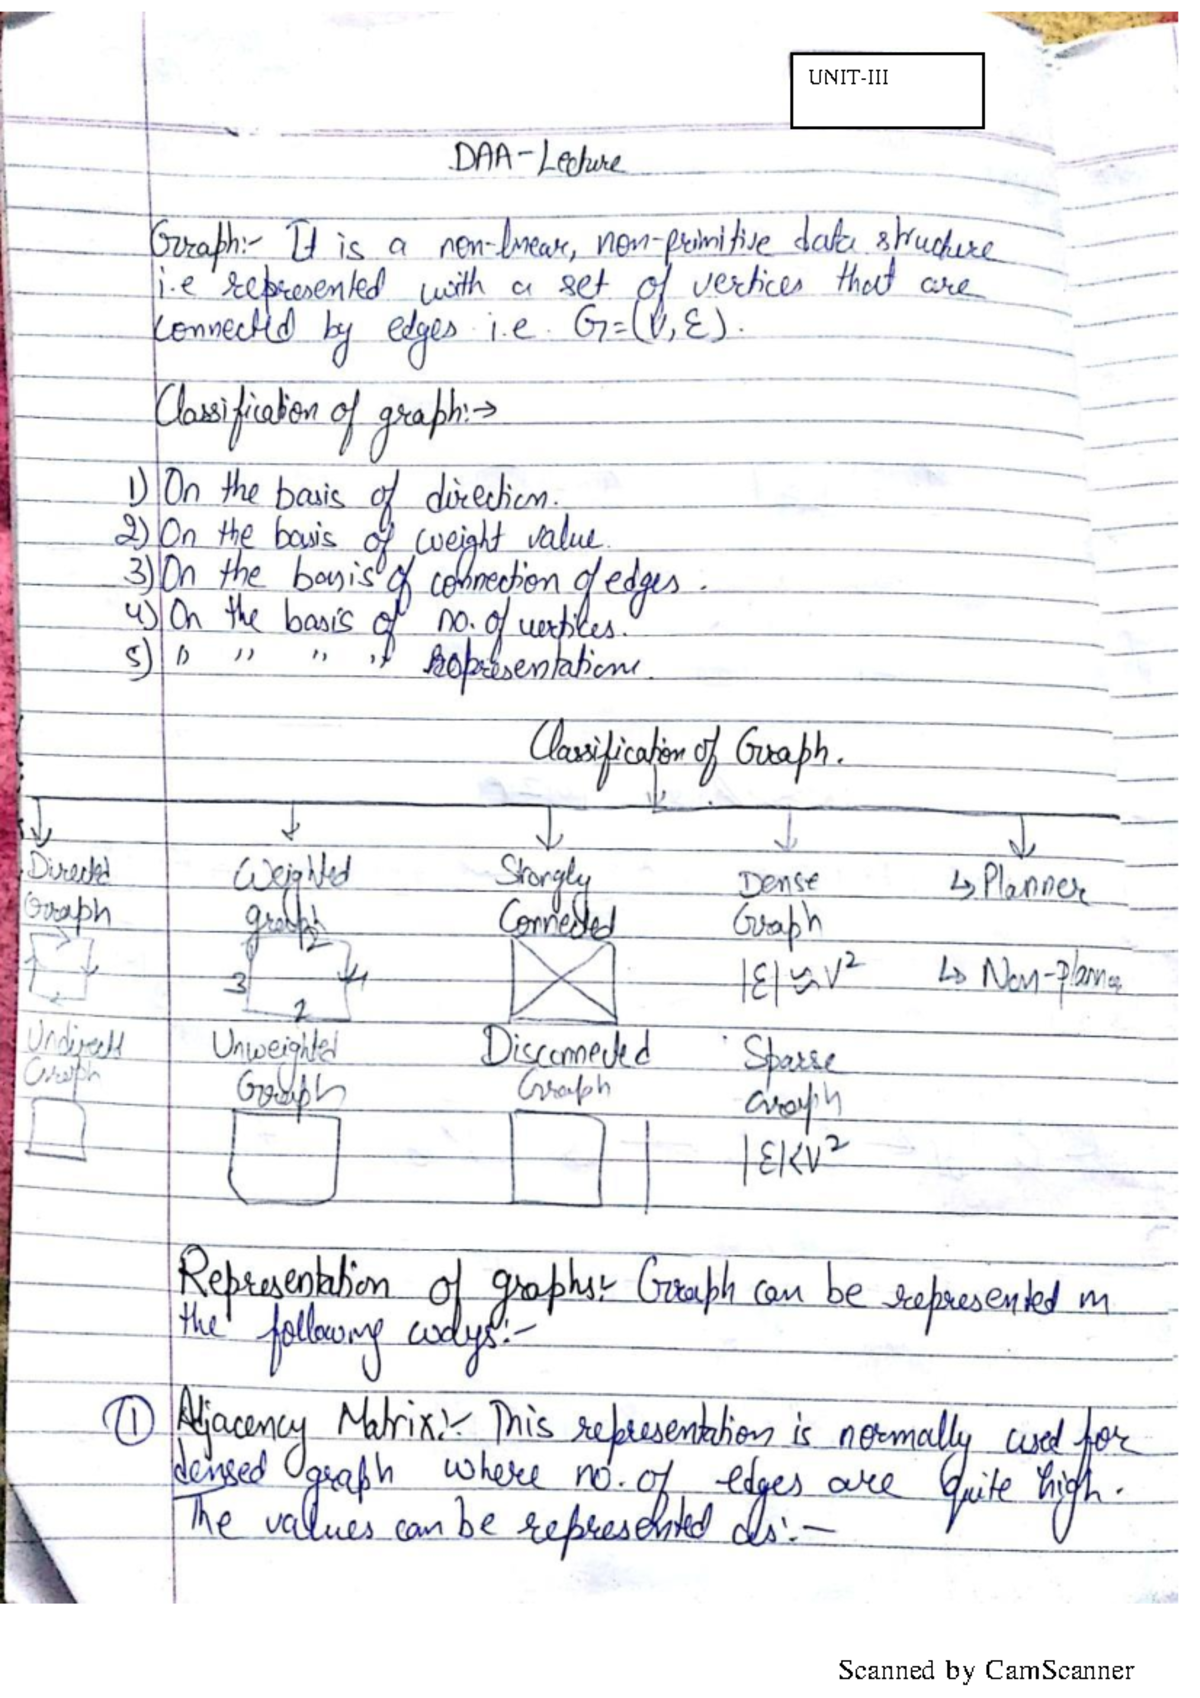 UNIT-III
DAA-Lecture
Graph:- It is a non-linear, non-primitive data structure
i.e represented with a set of vertices that are
connected by edges i.e. G=(V,E).
Classification of graph:→
1) On the basis of direction.
2) On the basis of weight value.
3) On the basis of connection of edges.
4) On the basis of no. of vertices.
5) " " " " Representation.
Classification of Graph.
Directed Weighted Strongly Dense ↳ Planner
Graph graph Connected Graph
2
3 4 |E| ≈ V² ↳ Non-planner
2
Undirected Unweighted Disconnected Sparse
Graph Graph Graph Graph
|E|<V²
Representation of graphs:- Graph can be represented in
the following ways:-
① Adjacency Matrix:- This representation is normally used for
densed graph where no. of edges are quite high.
The values can be represented as:-
Scanned by CamScanner